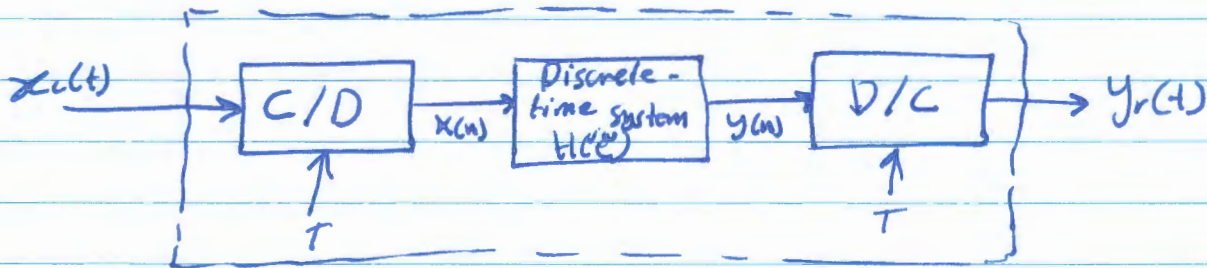 x_c(t)
C/D
x(n)
Discrete-
time system
H(e^jω)
y(n)
D/C
y_r(t)
T
T